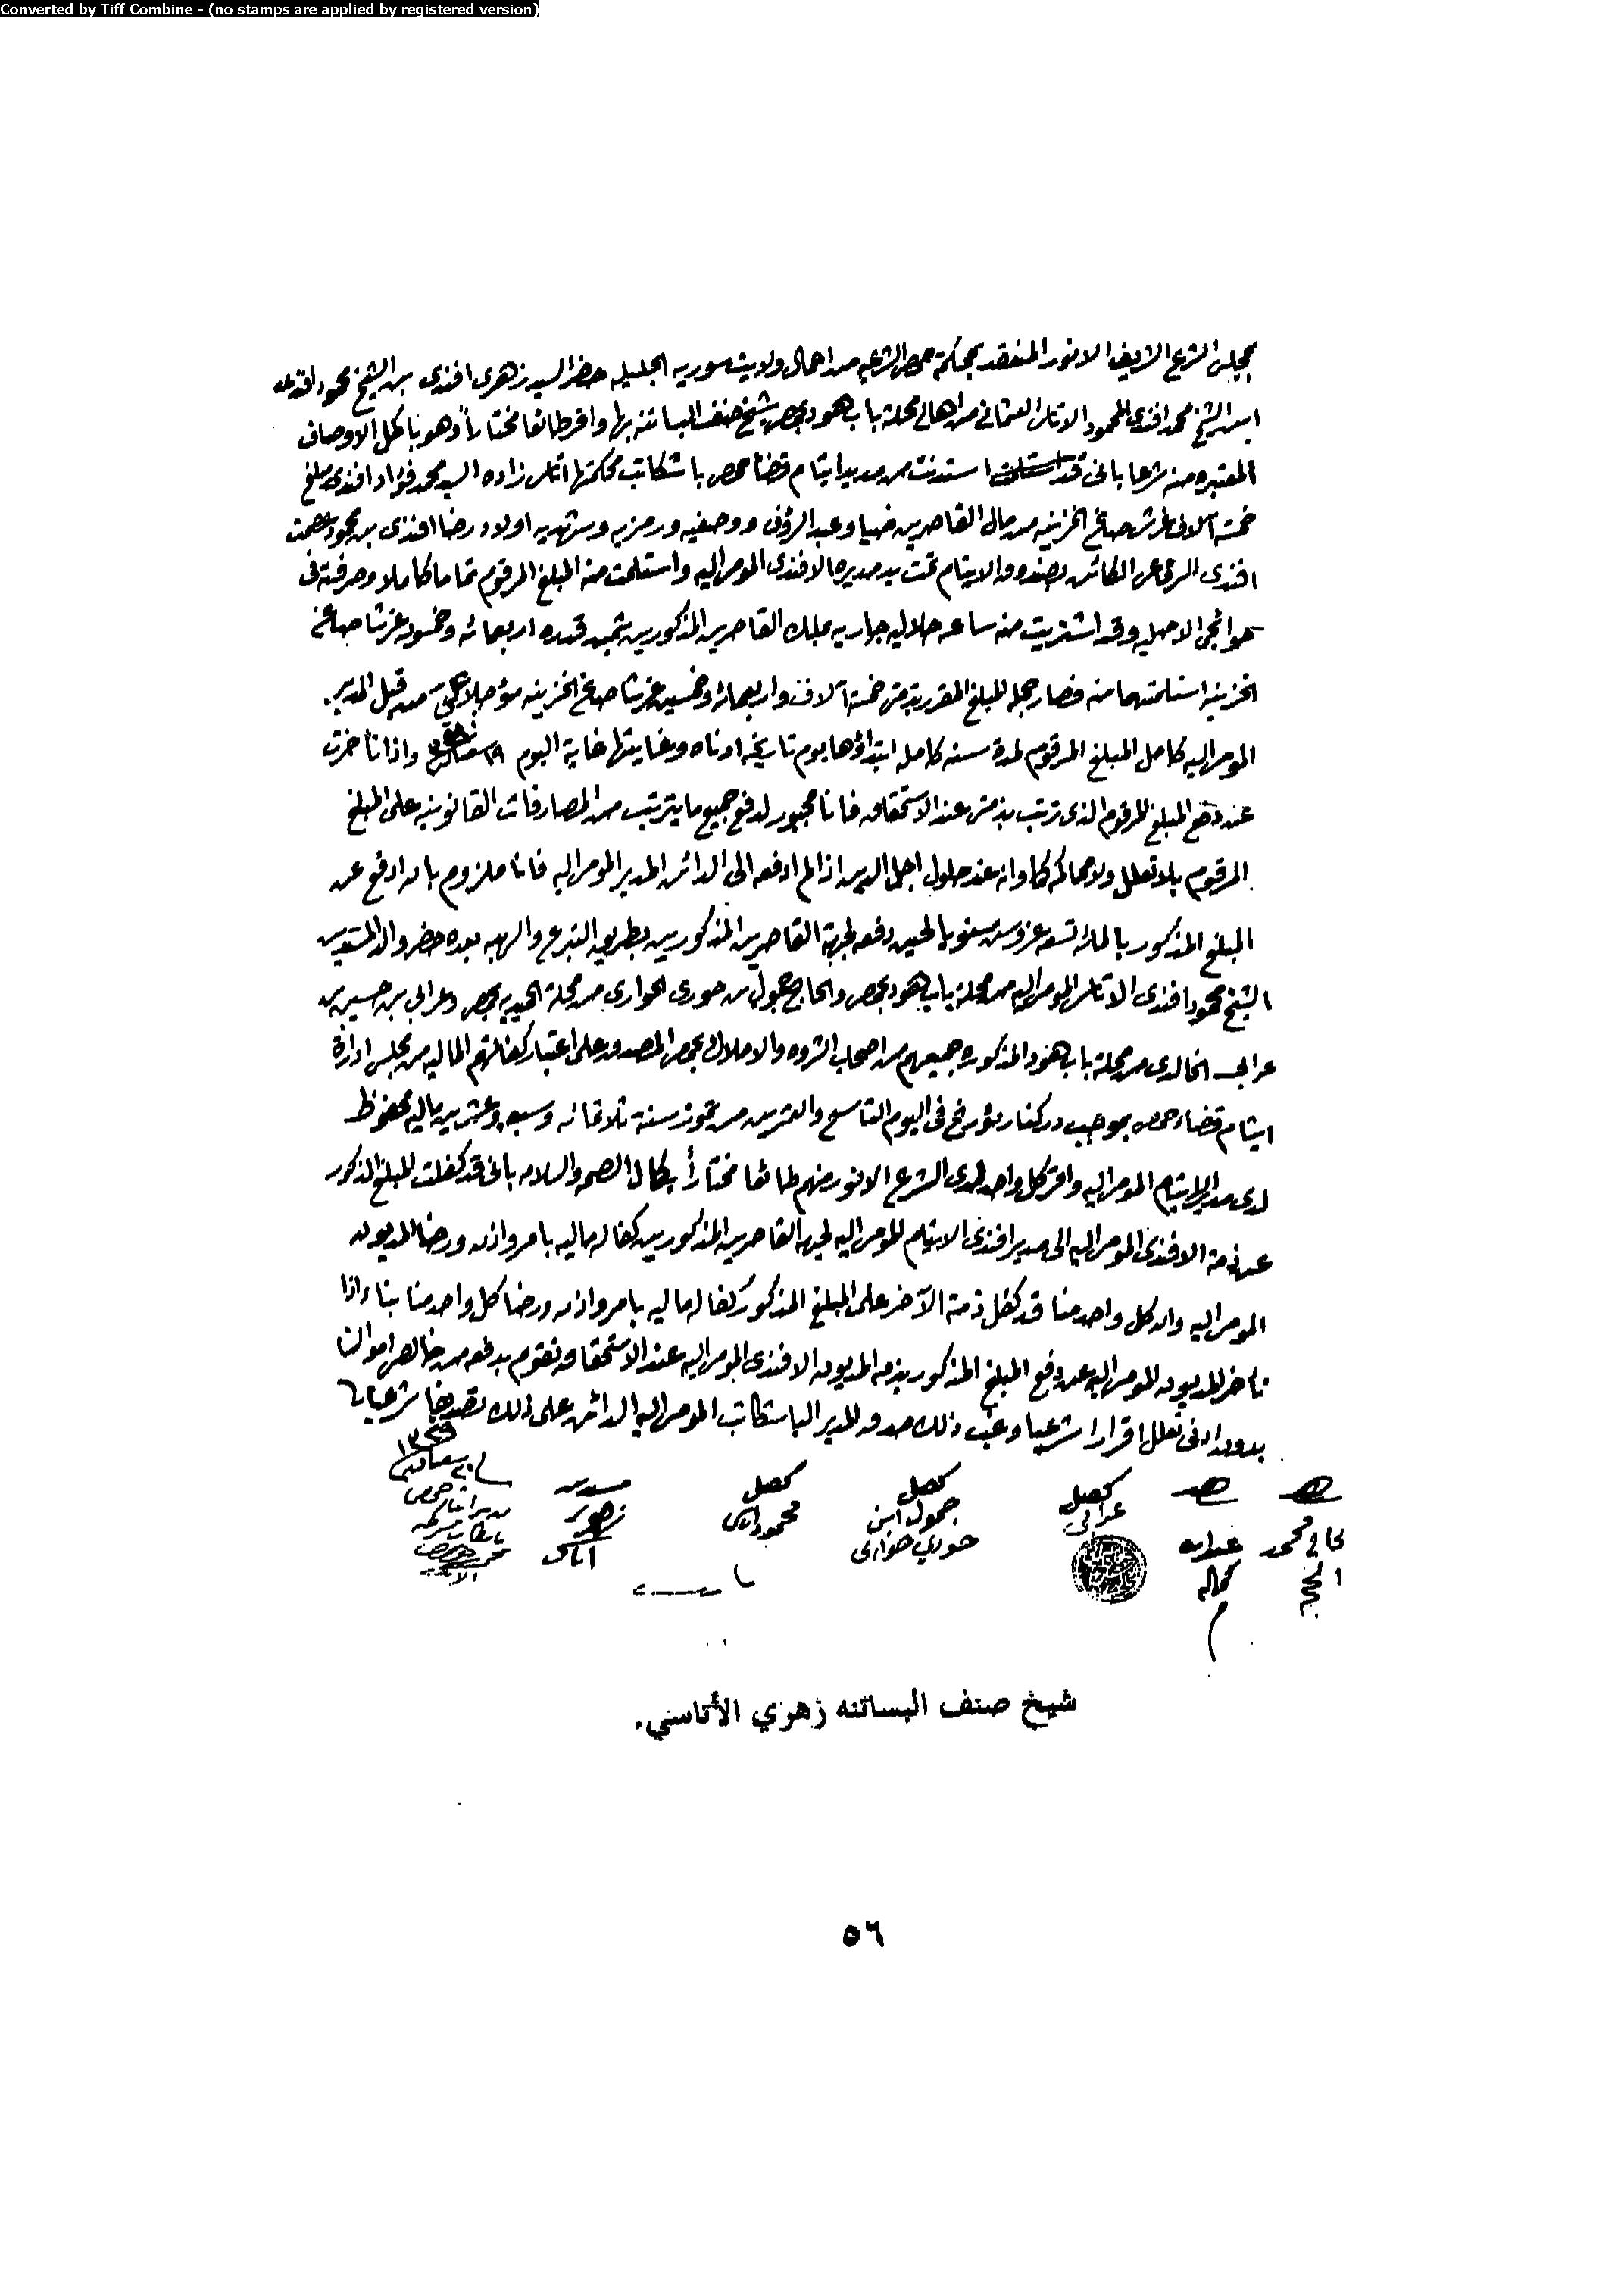 Converted by Tiff Combine - (no stamps are applied by registered version)
بمجلس الشرع الشريف الانور المنعقد بمحكمة حمص الشرعيه من اعمال ولايت سوريه الجليله حضر السيد زهري افندي بن الشيخ محمود افندي
ابن الشيخ محمد افندي المحمود الاتاسي العثماني من اهالي محلة باب هود بحمص شيخ صنف البساتنه بها واقر طائعا مختارا وهو باكمل الاوصاف
المعتبره منه شرعا باني قد استدنت من مدير ايتام قضا حمص باشكاتب محكمتها اتاسي زاده السيد محمد فؤاد افندي مبلغ
خمسة آلاف غرش صاغ الخزينه من مال القاصرين ضيا وعبد الرؤف ووصفيه ورمزيه وشهديه اولاد رضا افندي بن محمود عصمت
افندي الكائن بصندوق الايتام تحت يد مديره الافندي المومى اليه واستلمت منه المبلغ المرقوم تماما كاملا وصرفته في
حوائجي الاصليه وقد اشتريت منه ساعه جاريه بملك القاصرين المذكورين بثمن قدره اربعمائه وخمسون غرشا صاغ
الخزينه استلمتها منه فصار جملة المبلغ المقرر بذمتي خمسة آلاف واربعمائة وخمسين غرشا صاغ الخزينه مؤجلا علي من قبل المدير
المومى اليه كامل المبلغ المرقوم لمدة سنه كامله ابتداؤها يوم تاريخه ادناه وغايتها غاية اليوم واذا تأخرت
عن دفع المبلغ المرقوم الذي ترتب بذمتي عند الاستحقاق فانا مجبور لدفع جميع ما يترتب من المصارفات القانونيه على المبلغ
المرقوم بلا تعلل ولا محاكمه كما وانه عند حلول اجل الدين اذا لم ادفعه الى الدائن المدير المومى اليه فانا ملزوم بان ادفع عن
المبلغ المذكور بالمائه تسعه غروش سنويا لحين دفعه لجهة القاصرين المذكورين بطريق التبرع والهبه بعده حضر والد المستدين
الشيخ محمود افندي الاتاسي المومى اليه من محلة باب هود بحمص والحاج جمول بن حوري الحواري من محلة الحميديه بحمص وعرابي بن حسين بن
عرابي الخالدي من محلة باب هود المذكوره جميعهم من اصحاب الثروه والاملاك بحمص المصدوق على اعتبار كفالتهم الماليه من مجلس ادارة
ايتام قضاء حمص بموجب دركنار مؤرخ في اليوم التاسع والعشرين من تموز سنة ثلاثمائه وسبع وعشرين ماليه محفوظ
لدى مدير الايتام المومى اليه واقر كل واحد لدى الشرع الانور منهم طائعا مختارا بكمال الصحه والسلامه باني قد كفلت المبلغ المذكور
عن ذمة الافندي المومى اليه الى مدير افندي الايتام المومى اليه لجهة القاصرين المذكورين كفاله ماليه بامر واذن ورضا المديون
المومى اليه وان كل واحد منا قد كفل ذمة الآخر على المبلغ المذكور كفاله ماليه بامر واذن ورضا كل واحد منا بنا واذا
تأخر المديون المومى اليه عن دفع المبلغ المذكور بذمه المديون الافندي المومى اليه عند الاستحقاق نقوم بدفعه من خالص اموالنا
بدون ادنى تعلل اقرارا شرعيا وغب ذلك صدق المدير الباشكاتب المومى اليه الدائن على ذلك تصديقا شرعيا
١٣٢٩
كفيل
عرابي
كفيل
جمول ابن
حوري حواري
كفيل
محمود اتاسي
مستدين
زهري
اتاسي
مدير ايتام حمص
شيخ صنف البساتنه زهري الأتاسي.
٥٦